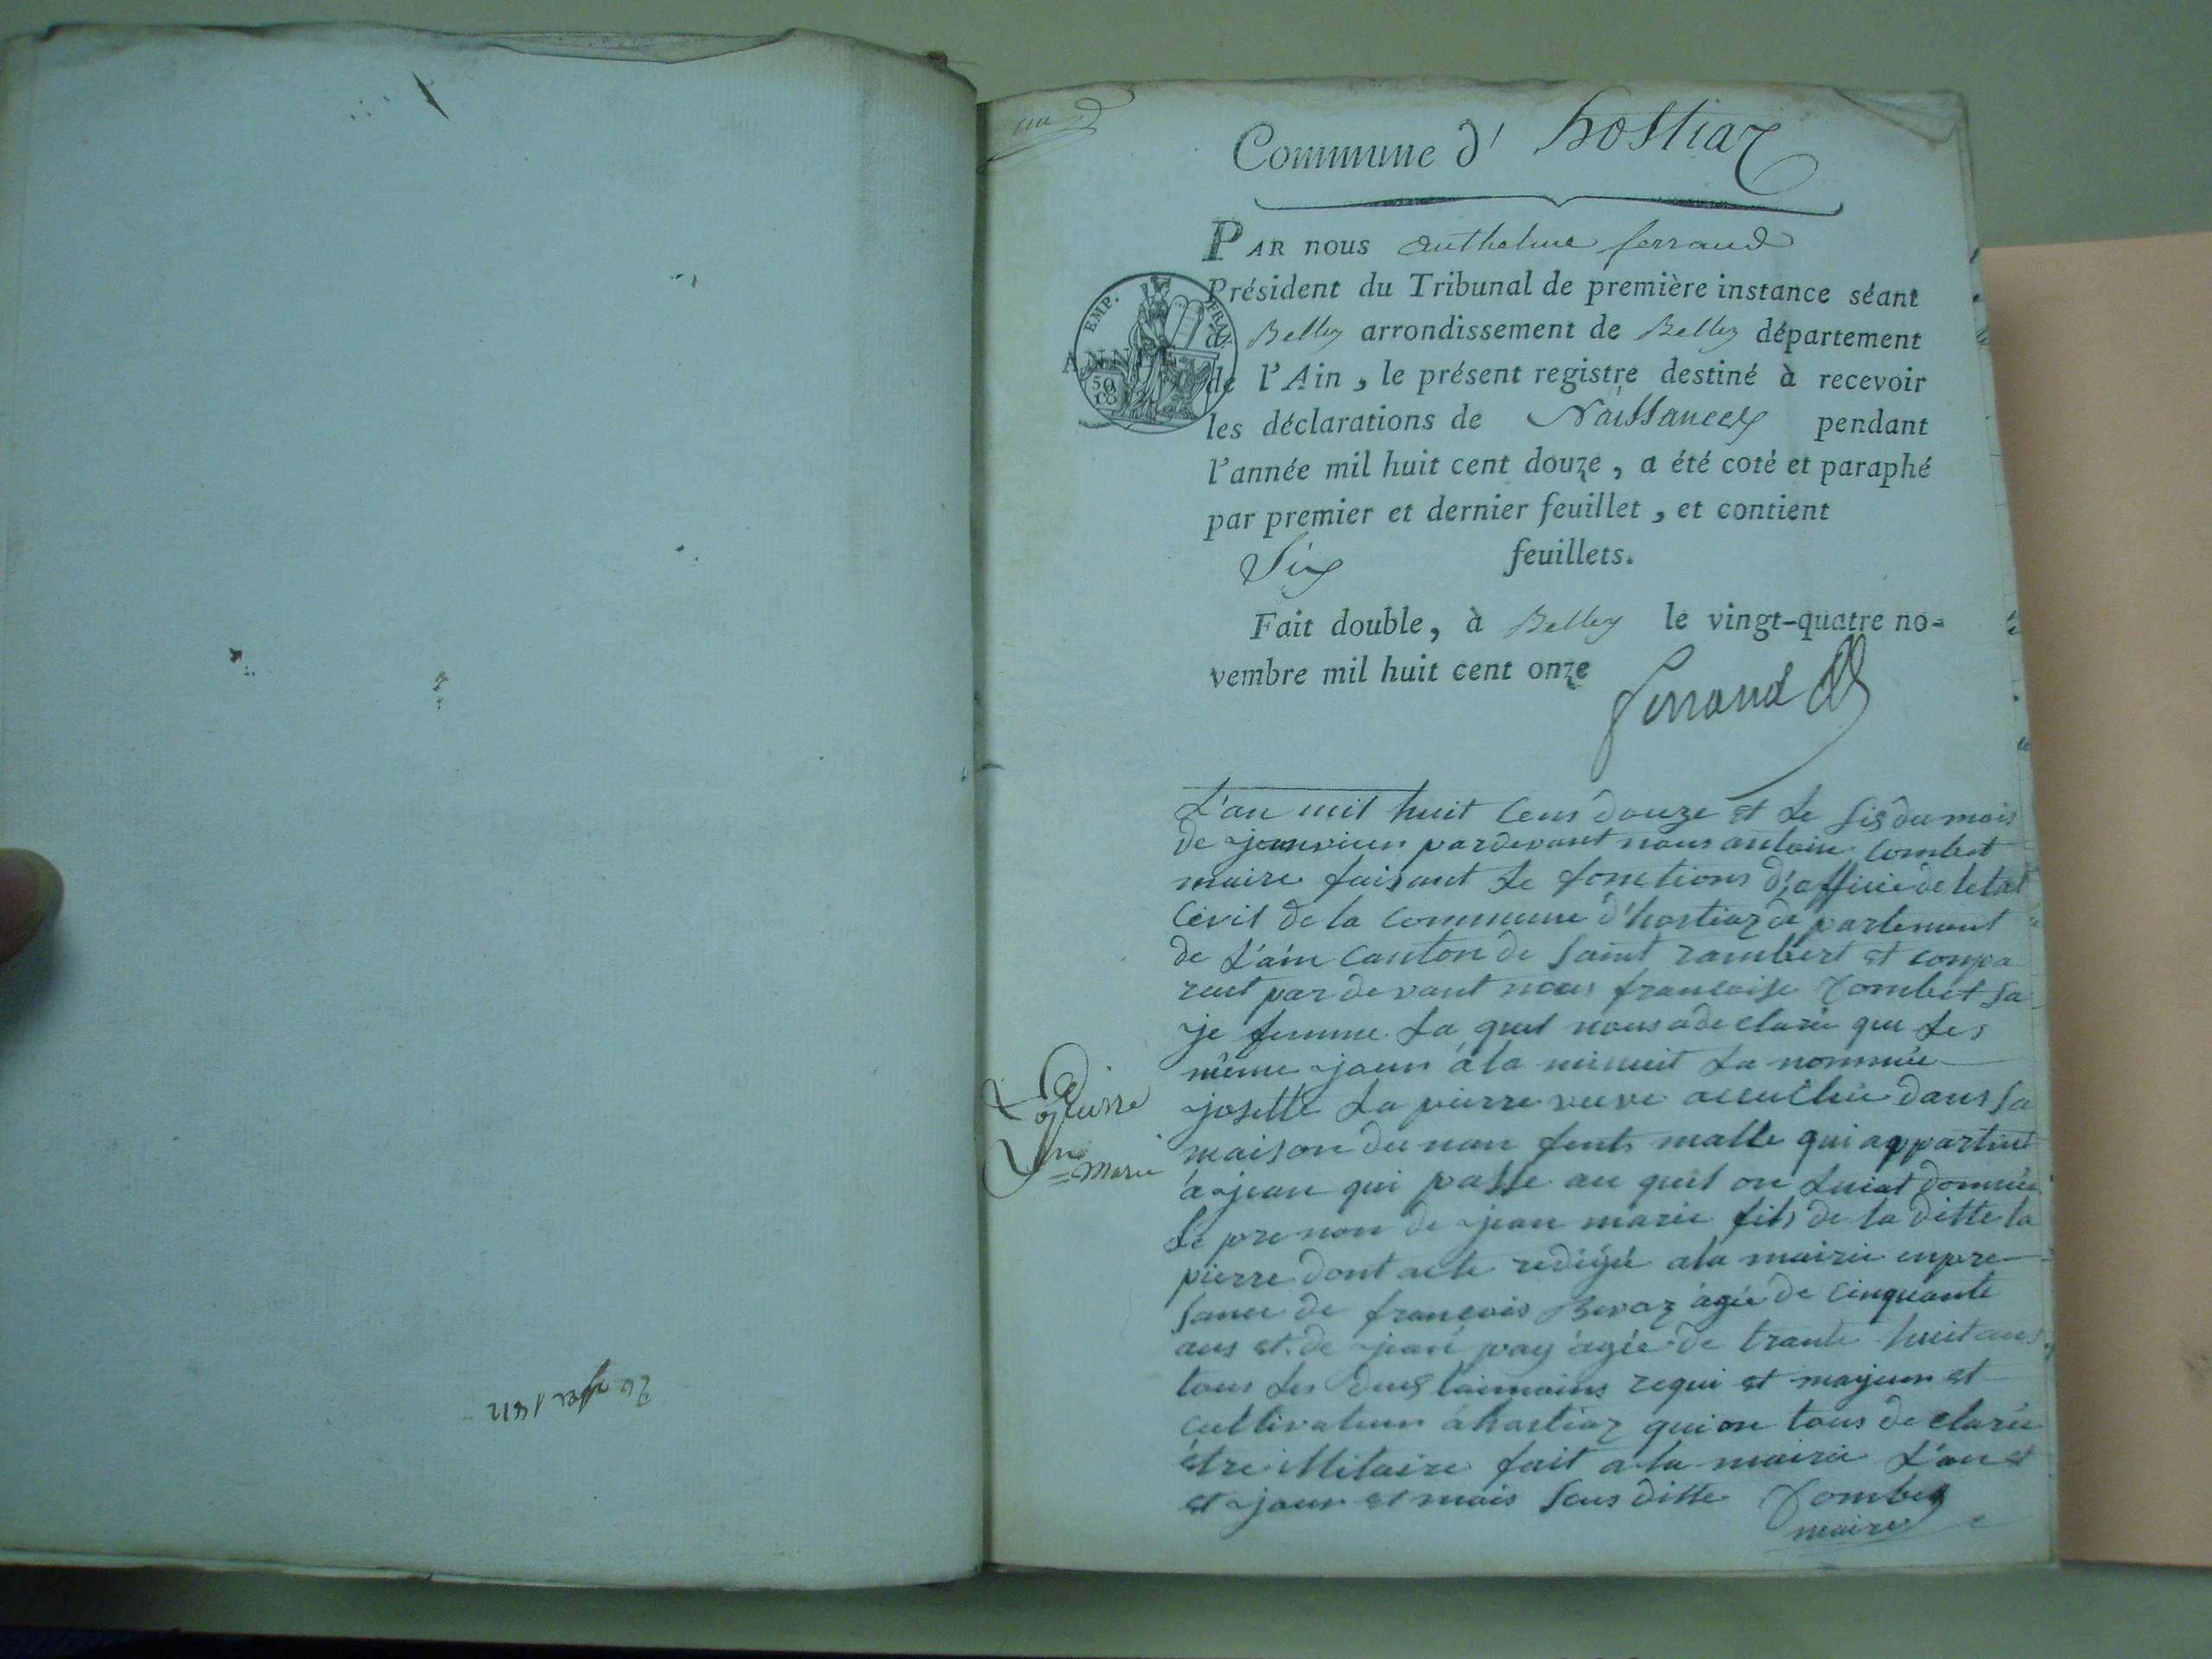 Commune d' hostiaz
PAR nous anthelme ferrand
Président du Tribunal de première instance séant
à Belley arrondissement de Belley département
de l'Ain, le présent registre destiné à recevoir
les déclarations de Naissances pendant
l'année mil huit cent douze, a été coté et paraphé
par premier et dernier feuillet, et contient
Six feuillets.
Fait double, à Belley le vingt-quatre no-
vembre mil huit cent onze
ferrand
EMP. FRAN.
ANN
50
L'an mil huit Cens douze et Le sis du mois
de janvier pardevant nous antoine Combet
maire faisant Le fonctions d'officie de letat
Civil de la Commune d'hostiaz de partement
de L'ain Canton de Saint rambert et compa
rut par devant nous francoise Combet sa
je femme La quel nous a de clarée que Les
même jour a la minuit La nommée
josette La pierre veuve accuchée dans sa
maison du nan fents malle qui appartint
a jean qui passe au quel on Luiat donnée
Le pre non de jean marie fils de la ditte la
pierre dont acte redigée ala mairie enpre
sance de francois Bevoz agée de Cinquante
ans et de jean pay agée de trante huit ans
tous Les deus taimoins requi et majeur et
cultivateur a hostiaz qui on tous de clarée
être illitaire fait a la mairie L'an et
et jour et mois sus ditte Combet
maire
Lapierre
Jn marie
1812